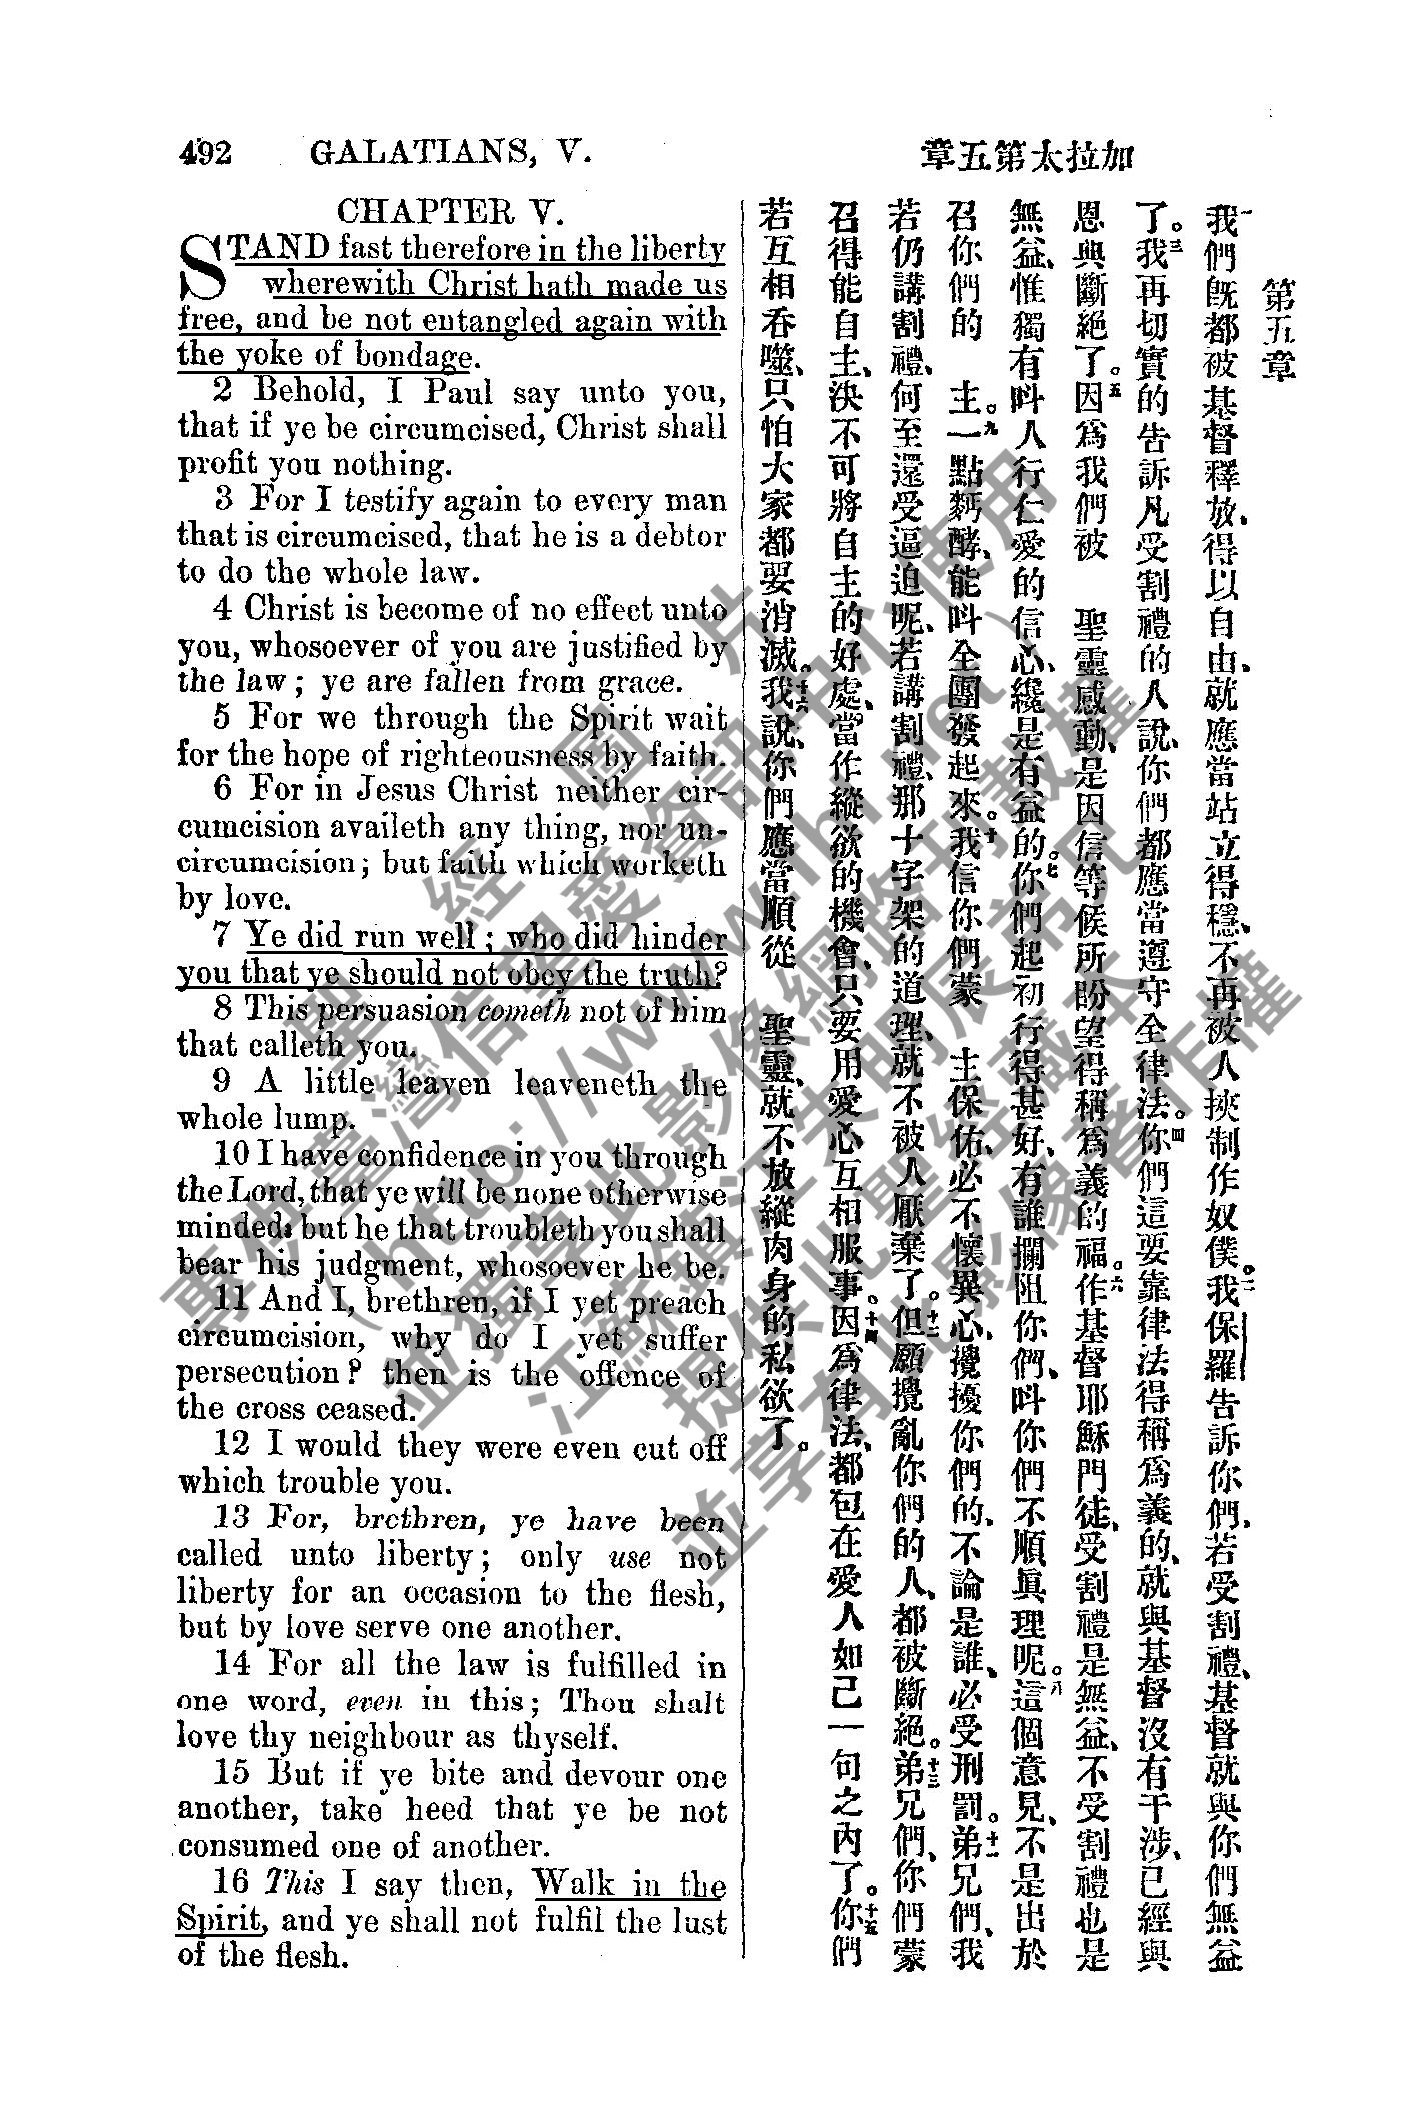 492 GALATIANS, V.
加拉太第五章
CHAPTER V.
STAND fast therefore in the liberty
wherewith Christ hath made us
free, and be not entangled again with
the yoke of bondage.
2 Behold, I Paul say unto you,
that if ye be circumcised, Christ shall
profit you nothing.
3 For I testify again to every man
that is circumcised, that he is a debtor
to do the whole law.
4 Christ is become of no effect unto
you, whosoever of you are justified by
the law; ye are fallen from grace.
5 For we through the Spirit wait
for the hope of righteousness by faith.
6 For in Jesus Christ neither cir-
cumcision availeth any thing, nor un-
circumcision; but faith which worketh
by love.
7 Ye did run well; who did hinder
you that ye should not obey the truth?
8 This persuasion cometh not of him
that calleth you.
9 A little leaven leaveneth the
whole lump.
10 I have confidence in you through
the Lord, that ye will be none otherwise
minded: but he that troubleth you shall
bear his judgment, whosoever he be.
11 And I, brethren, if I yet preach
circumcision, why do I yet suffer
persecution? then is the offence of
the cross ceased.
12 I would they were even cut off
which trouble you.
13 For, brethren, ye have been
called unto liberty; only use not
liberty for an occasion to the flesh,
but by love serve one another.
14 For all the law is fulfilled in
one word, even in this; Thou shalt
love thy neighbour as thyself.
15 But if ye bite and devour one
another, take heed that ye be not
consumed one of another.
16 This I say then, Walk in the
Spirit, and ye shall not fulfil the lust
of the flesh.
第五章
一我們旣都被基督釋放、得以自由、就應當站立得穩、不再被人挾制作奴僕。二我保羅告訴你們、若受割禮、基督就與你們無益
了。三我再切實的告訴凡受割禮的人說、你們都應當遵守全律法。四你們這要靠律法得稱爲義的、就與基督沒有干涉、已經與
恩典斷絕了。五因爲我們被 聖靈感動、是因信等候所盼望得稱爲義的福。六作基督耶穌門徒、受割禮是無益、不受割禮也是
無益、惟獨有呌人行仁愛的信心、纔是有益的。七你們起初行得甚好、有誰攔阻你們、呌你們不順眞理呢。八這個意見、不是出於
召你們的 主。九一點麪酵、能呌全團發起來。十我信你們蒙 主保佑、必不懷異心、攪擾你們的、不論是誰、必受刑罰。十一弟兄們、我
若仍講割禮、何至還受逼迫呢、若講割禮、那十字架的道理、就不被人厭棄了。十二但願攪亂你們的人、都被斷絕。十三弟兄們、你們蒙
召得能自主、決不可將自主的好處、當作縱欲的機會、只要用愛心互相服事。十四因爲律法、都包在愛人如己一句之內了。十五你們
若互相呑噬、只怕大家都要消滅。十六我說、你們應當順從 聖靈、就不放縱肉身的私欲了。
聖經圖片
專供臺灣信望愛資訊中心使用
( http://www.fhl.net )
並獨享此影像網路刊載權
江蘇鎮江朱明辰弟兄
提供此聖經藏本
並享有此影像著作權